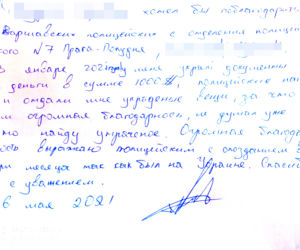 хотел бы поблагодарить
Варшавских полицейских с отделения полиции
N7 Прага-Полудня,
января 2021 у меня украли документы
деньги в сумме 1000$, полицейские на
и отдали мне украденые вещи, за что
м огромная благодарность, я думал уже
то найду украденое. Огромная благод
выражаю полицейским с опозданием
ри месяца так как был на Украине. Спасиб
с уважением.
6 мая 2021